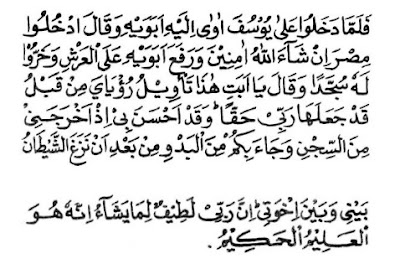 فَلَمَّا دَخَلُوا عَلٰى يُوْسُفَ اٰوٰى اِلَيْهِ اَبَوَيْهِ وَقَالَ ادْخُلُوْا
مِصْرَ اِنْ شَآءَ اللّٰهُ اٰمِنِيْنَ وَرَفَعَ اَبَوَيْهِ عَلَى الْعَرْشِ وَخَرُّوْا
لَهٗ سُجَّدًا وَقَالَ يَا اَبَتِ هٰذَا تَأْوِيْلُ رُؤْيَايَ مِنْ قَبْلُ
قَدْ جَعَلَهَا رَبِّيْ حَقًّا وَقَدْ اَحْسَنَ بِيْ اِذْ اَخْرَجَنِيْ
مِنَ السِّجْنِ وَجَآءَ بِكُمْ مِنَ الْبَدْوِ مِنْ بَعْدِ اَنْ نَزَغَ الشَّيْطَانُ
بَيْنِيْ وَبَيْنَ اِخْوَتِيْ اِنَّ رَبِّيْ لَطِيْفٌ لِمَا يَشَآءُ اِنَّهٗ هُوَ
الْعَلِيْمُ الْحَكِيْمُ.